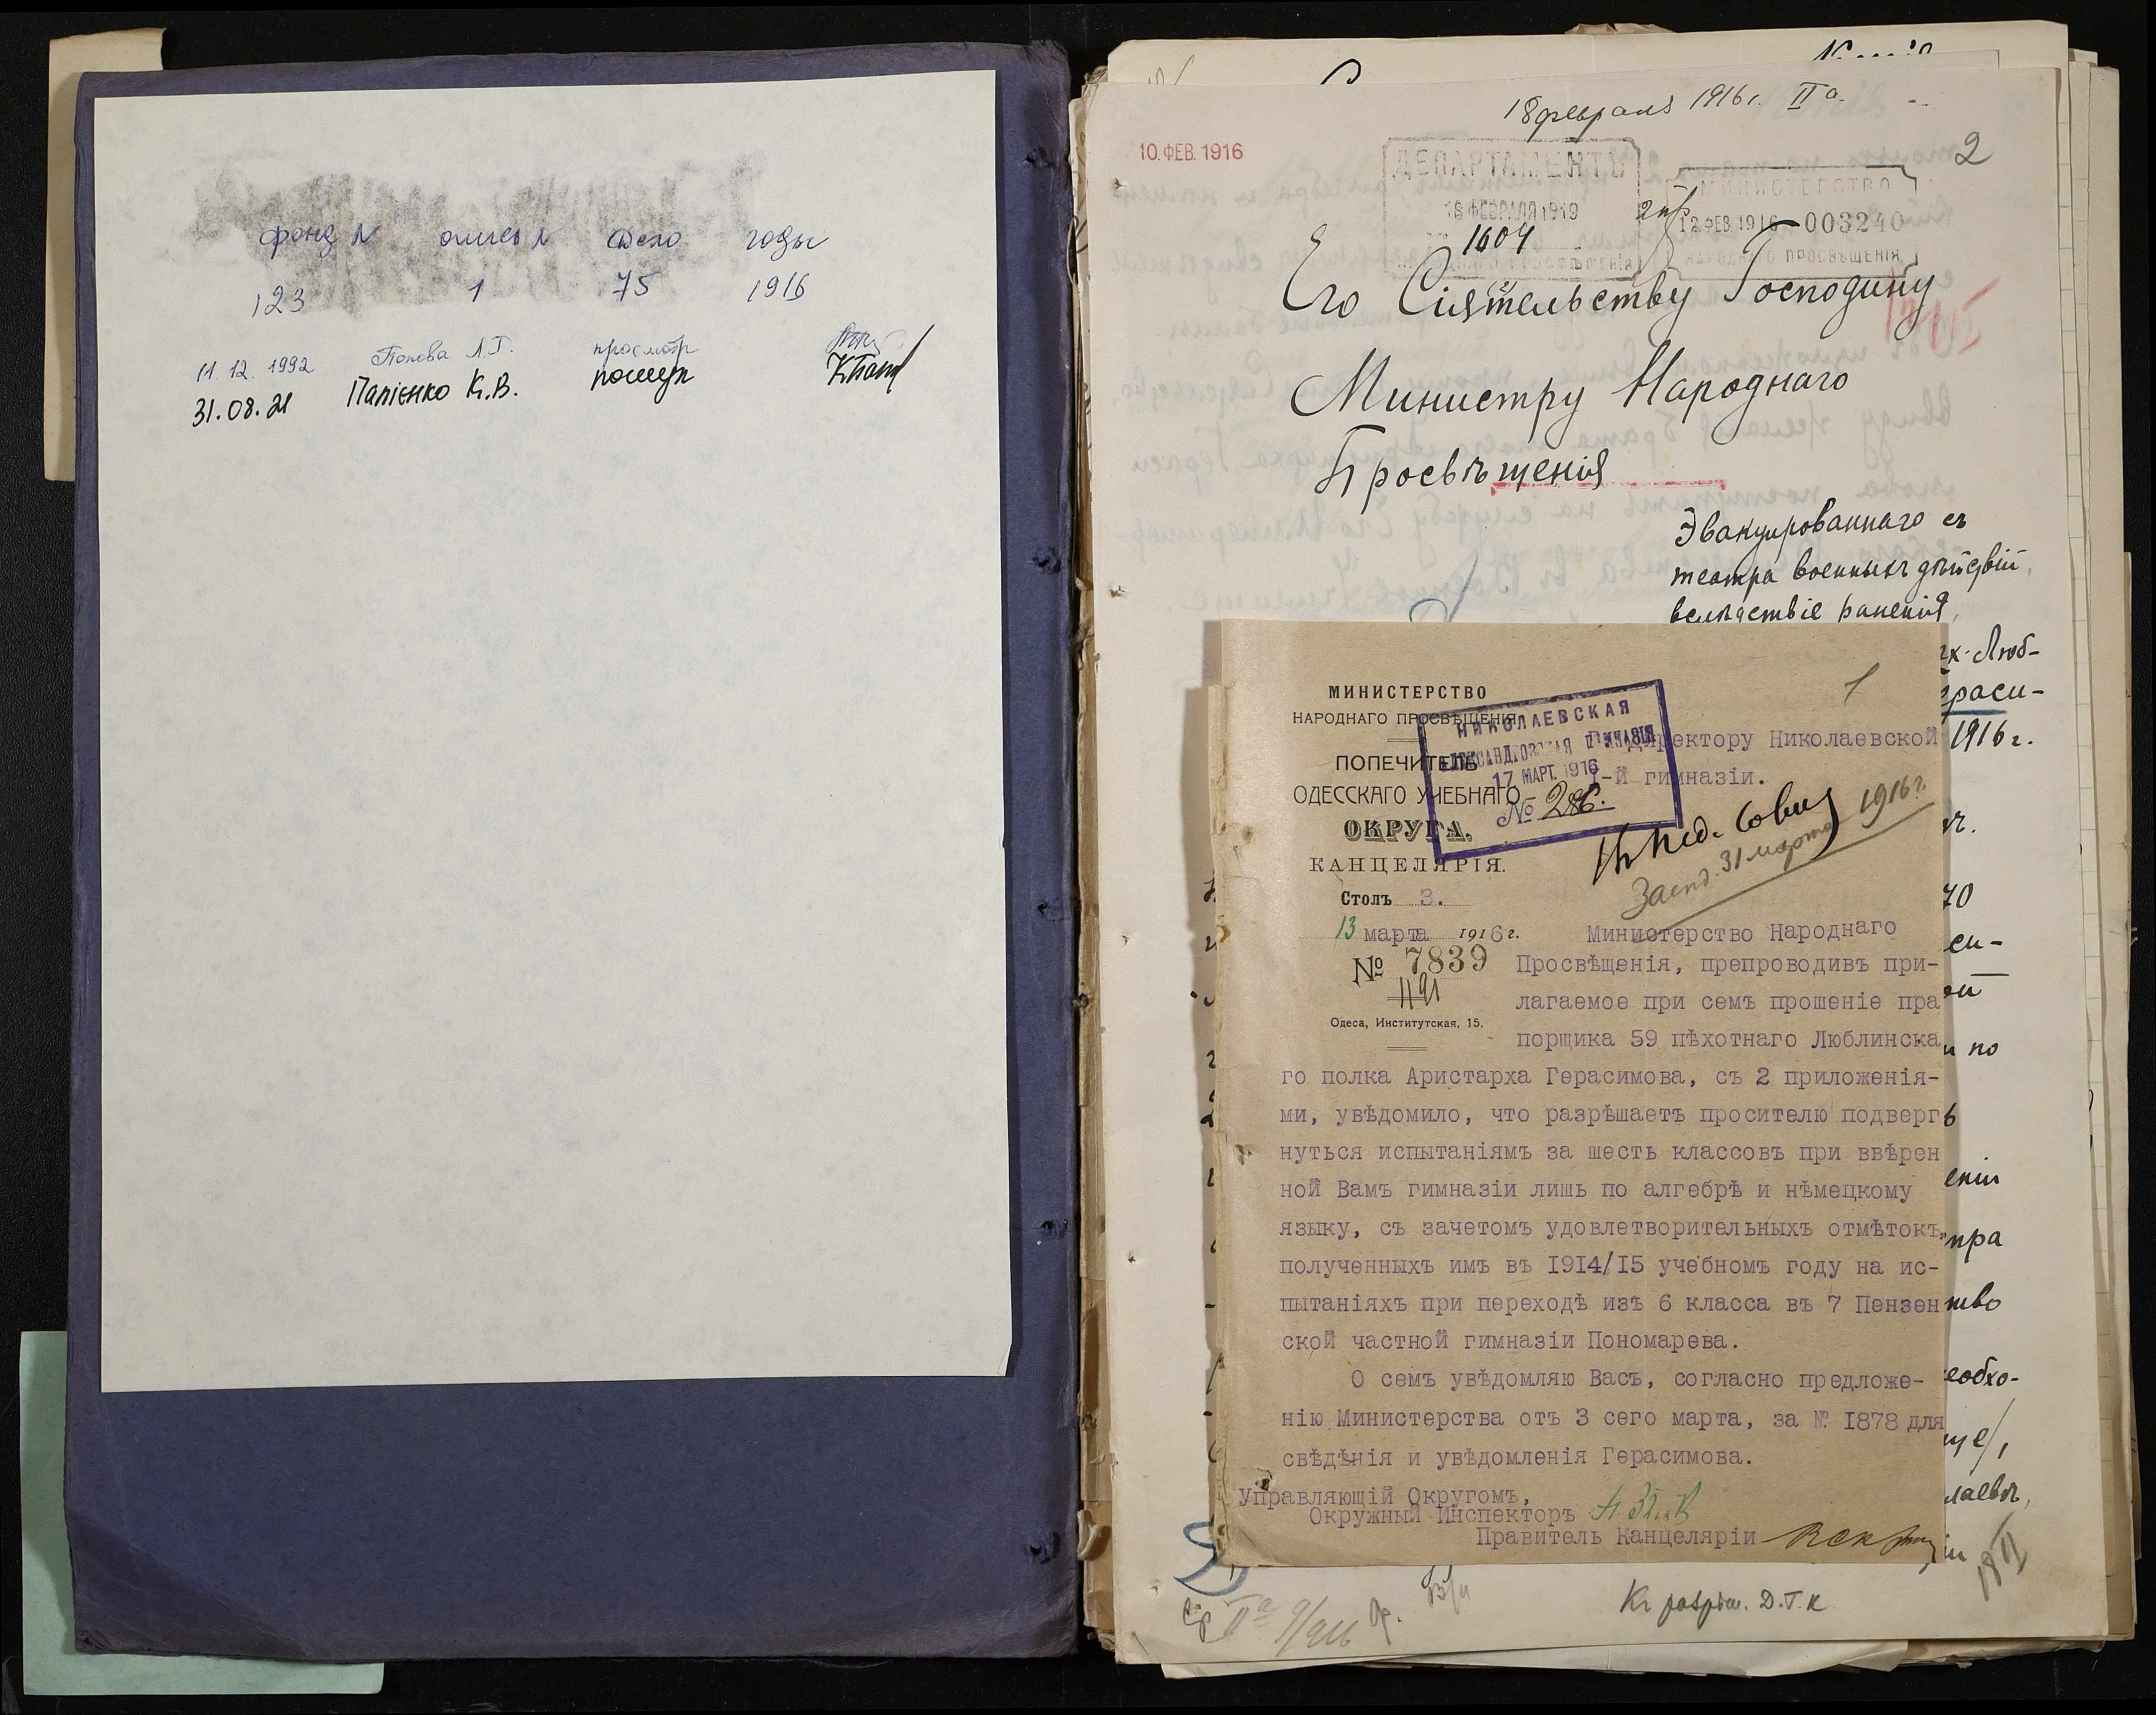 фонд N опись N дело годы
123 1 75 1916
11. 12. 1992 Попова Л.Г. просмотр
31.08.21 Папієнко К.В. пошук
18 февраля 1916 г. II а.
10. ФЕВ. 1916
2
ДЕПАРТАМЕНТЪ
18 ФЕВРАЛЯ 1916
1604
МИНИСТЕРСТВО
12 ФЕВ. 1916 - 003240
НАРОДНАГО ПРОСВѢЩЕНІЯ
Его Сіятельству Господину
Министру Народнаго
Просвѣщенія
Эвакуированнаго съ
театра военныхъ дѣйствій,
вслѣдствіе раненія,
х. Люб-
раси-
1916 г.
МИНИСТЕРСТВО
НАРОДНАГО ПРОСВѢЩЕНІЯ
ПОПЕЧИТЕЛЬ
ОДЕССКАГО УЧЕБНАГО
ОКРУГА.
КАНЦЕЛЯРІЯ.
Столъ 3.
13 марта 1916 г.
№ 7839
1191
Одеса, Институтская, 15.
1
НИКОЛАЕВСКАЯ
АЛЕКСАНДРОВСКАЯ ГИМНАЗІЯ
17 МАРТ. 1916
№ 286.
Г. Директору Николаевской
1-й гимназіи.
Въ Пед. Совѣтъ
Засѣд. 31 марта 1916 г.
Министерство Народнаго
Просвѣщенія, препроводивъ при-
лагаемое при семъ прошеніе пра
порщика 59 пѣхотнаго Люблинска
го полка Аристарха Герасимова, съ 2 приложенія-
ми, увѣдомило, что разрѣшаетъ просителю подверг
нуться испытаніямъ за шесть классовъ при ввѣрен
ной Вамъ гимназіи лишь по алгебрѣ и нѣмецкому
языку, съ зачетомъ удовлетворительныхъ отмѣтокъ,
полученныхъ имъ въ 1914/15 учебномъ году на ис-
пытаніяхъ при переходѣ изъ 6 класса въ 7 Пензен
ской частной гимназіи Пономарева.
О семъ увѣдомляю Васъ, согласно предложе-
нію Министерства отъ 3 сего марта, за № 1878 для
свѣдѣнія и увѣдомленія Герасимова.
Управляющій Округомъ,
Окружный Инспекторъ
Правитель Канцеляріи
70
си-
ой
и по
еніи
тра
тво
еобхо-
ще/,
лаевѣ,
18/II